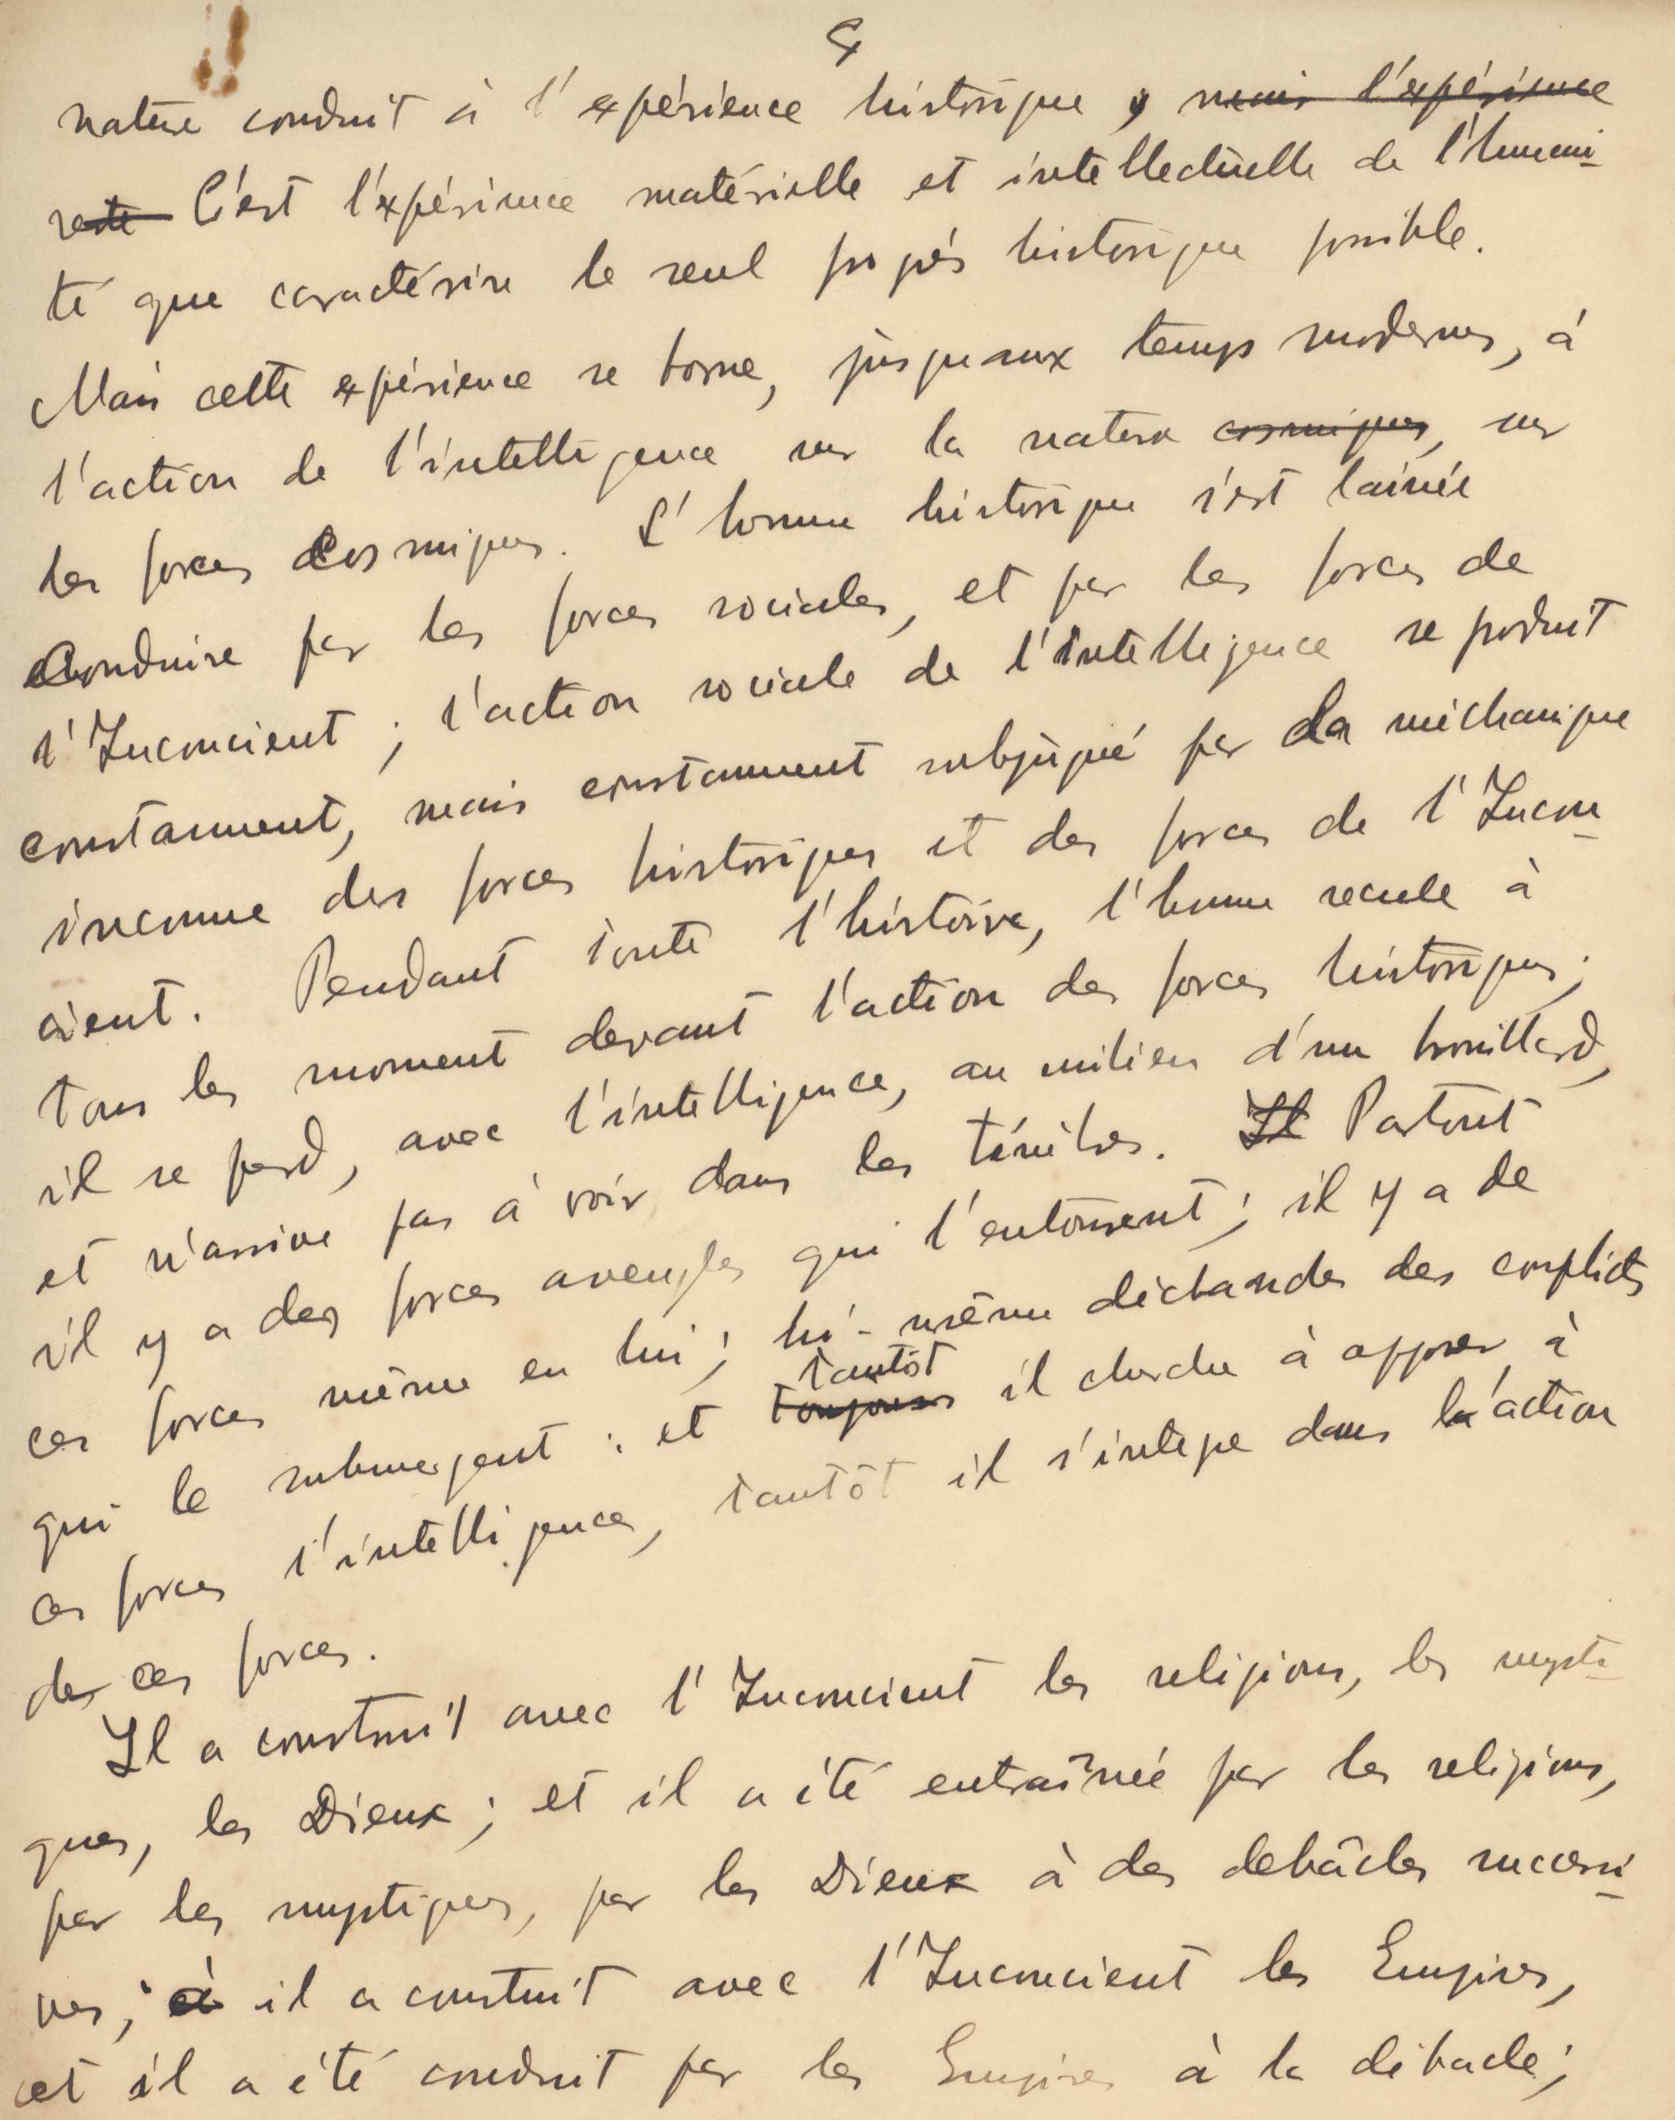 nature conduit à l'expérience historique, mais l'expérience
reste C'est l'expérience matérielle et intellectuelle de l'humani-
té que caractérise le seul progrés historique possible.
Mais cette expérience se borne, jusqueaux temps modernes, à
l'action de l'intelligence sur la nature cosmiques, sur
les forces cosmiques. L'homme historique s'est laissée
conduire par les forces sociales, et par les forces de
l'Inconcient ; l'action sociale de l'intelligence se produit
constamment, mais constamment subjugué par la méchanique
inconnue des forces historiques et des forces de l'Incon-
cient. Pendant toute l'histoire, l'homme recule à
tous les moment devant l'action des forces historiques ;
il se perd, avec l'intelligence, au milieu d'un brouillard,
et n'arrive pas à voir dans les ténèbres. Il Partout
il y a des forces aveugles qui l'entourent ; il y a de
ces forces même en lui ; lui-même déchande des conflicts
qui le submergent : et toujours tantôt il cherche à opposer à
ces forces l'intelligence, tantôt il s'intègre dans l'action
de ces forces.
Il a construit avec l'Inconcient les religions, les mysti-
ques, les Dieux ; et il a été entraînée par les religions,
par les mystiques, par les Dieux à des debâcles successi-
ves ; il a construit avec l'Inconcient les Empires,
et il a été conduit par les Empires à la débacle ;